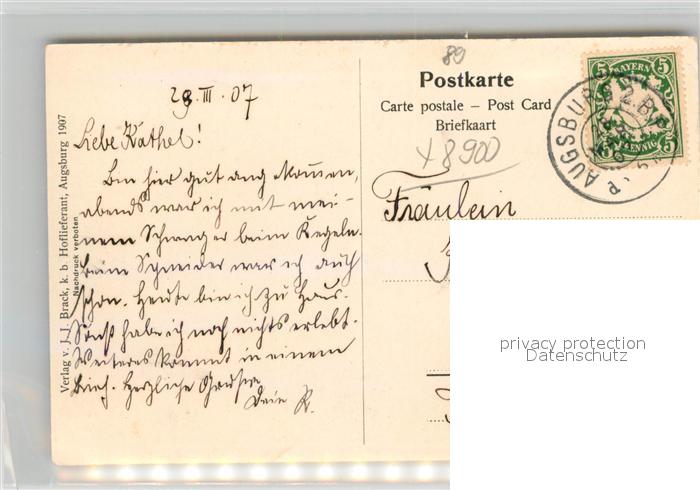 89
Postkarte
Carte postale – Post Card
Briefkaart
x 8900
BAYERN
5 5
5 5
PFENNIG
AUGSBURG 2.B.P.
Fräulein
29. III. 07
Liebe Kathel!
Bin hier gut angekommen,
abends war ich mit mei-
nem Schwager beim Kegeln.
beim Schneider war ich auch
schon. Heute bin ich zu Haus.
Sonst habe ich noch nichts erlebt.
Weiteres kommt in einem
Brief. Herzliche Grüsse
Dein R.
Verlag v. J. J. Brack, k. b. Hoflieferant, Augsburg 1907
Nachdruck verboten
privacy protection
Datenschutz